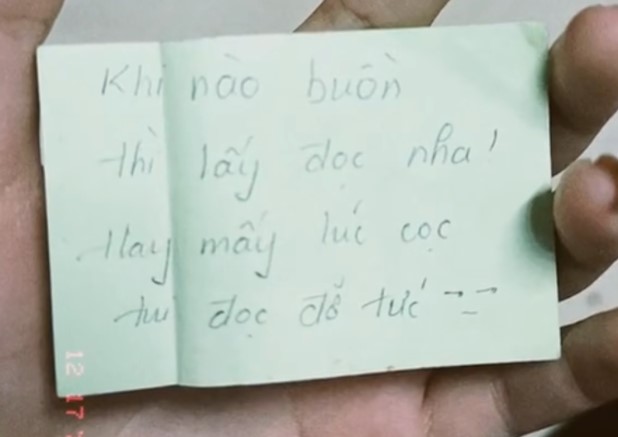 Khi nào buồn
thì lấy đọc nha!
Hay mấy lúc cọc
tui đọc đỡ tức →_→
12 17